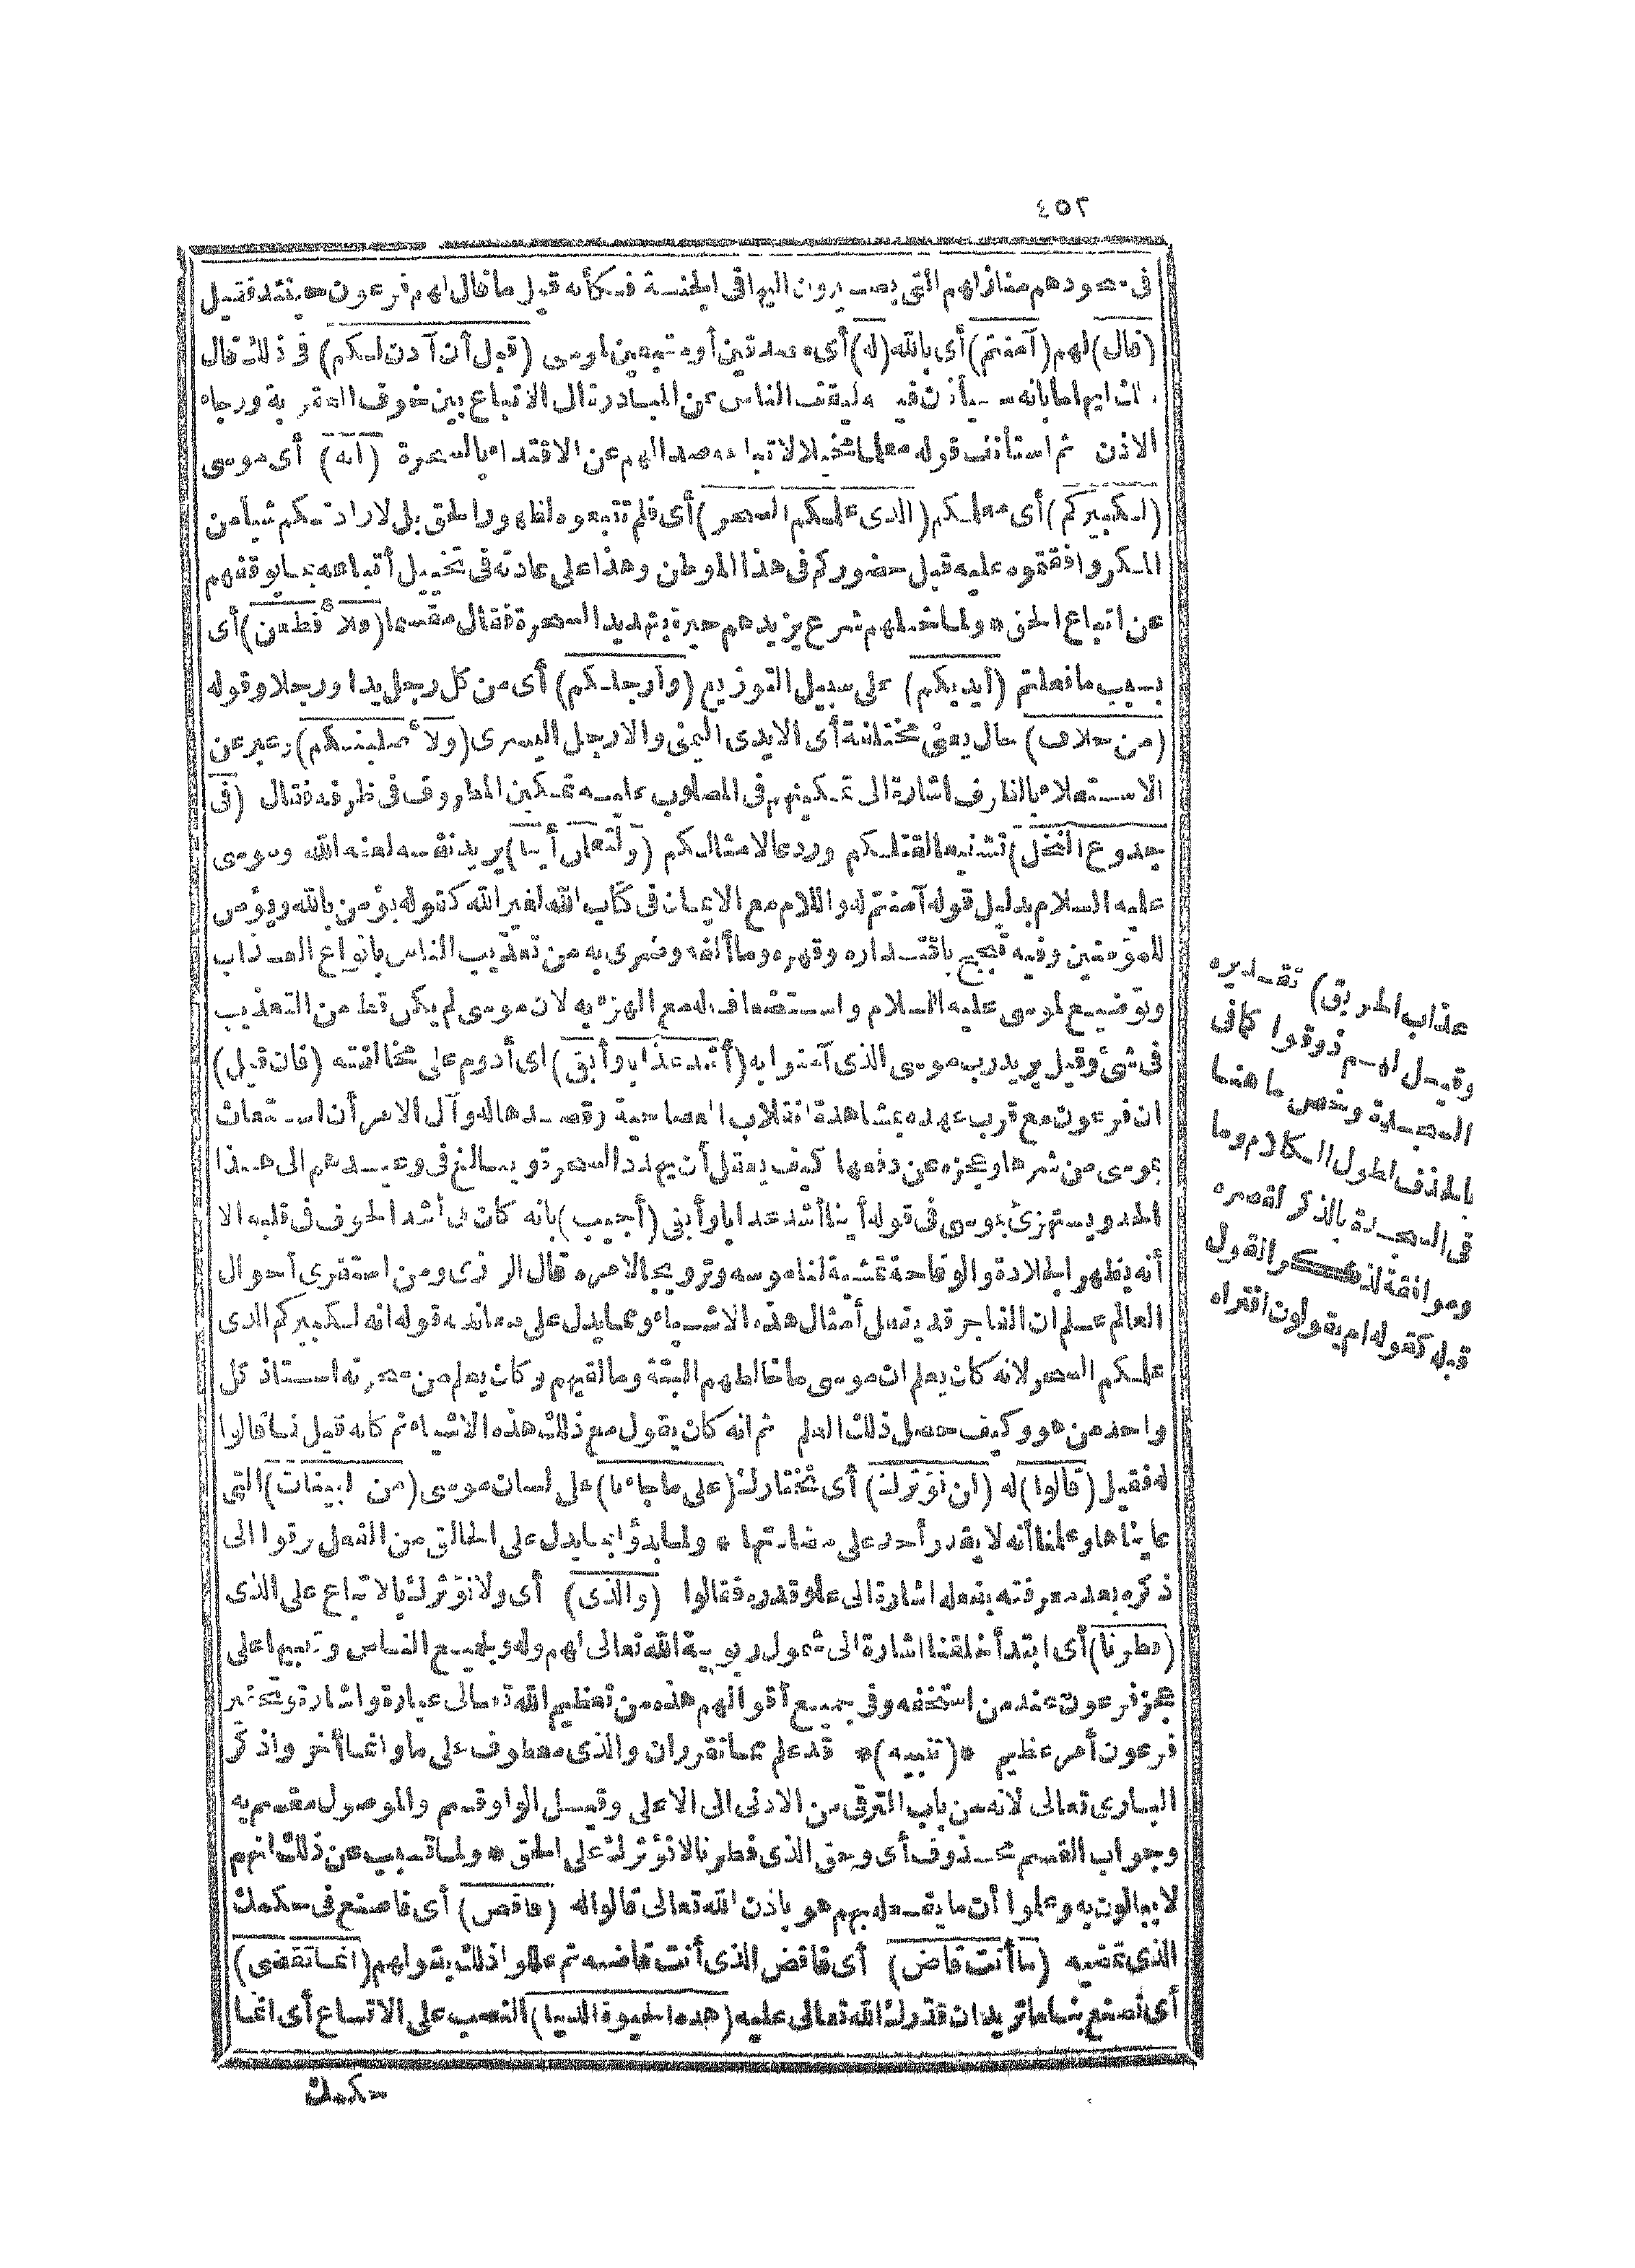 ٤٥٢
فى سجودهم منازلهم التى يصيرون اليها فى الجنة فكأنه قيل ما قال لهم فرعون حينئذ فقيل
(قال) لهم (آمنتم) أى بالله (له) أى مصدقين أو متبعين لموسى (قبل أن آذن لكم) فى ذلك قال
ذلك ايهاما بانه سيأذن فيه ليقف الناس عن المبادرة الى الاتباع بين خوف العقوبة ورجاء
الاذن ثم استأنف قوله معللا مخيلا لاتباعه صدا لهم عن الاقتداء بالسحرة (انه) أى موسى
(لكبيركم) أى معلمكم (الذى علمكم السحر) أى فلم تتبعوه لظهور الحق بل لارادتكم شيأ من
المكر وافقتموه عليه قبل حضوركم فى هذا الموطن وهذا على عادته فى تخييل أتباعه بما يوقفهم
عن اتباع الحق * ولما خيلهم شرع يزيدهم حيرة بتهديد السحرة فقال مقسما (ولأقطعن) أى
بسبب ما فعلتم (أيديكم) على سبيل التوزيع (وأرجلكم) أى من كل رجل يدا ورجلا وقوله
(من خلاف) حال يعنى مختلفة أى الايدى اليمنى والارجل اليسرى (ولأصلبنكم) وعبر عن
الاستعلاء بالظرف اشارة الى تمكينهم فى المصلوب عليه تمكين المظروف فى ظرفه فقال (فى
جذوع النخل) تشنيعا لقتلكم وردعا لامثالكم (ولتعلمن أينا) يريد نفسه لعنه الله وموسى
عليه السلام بدليل قوله آمنتم له واللام مع الايمان فى كتاب الله لغير الله كقوله يؤمن بالله ويؤمن
للمؤمنين وفيه تبجح باقتداره وقهره وما ألفه وضرى به من تعذيب الناس بانواع العذاب
وتوضيع لموسى عليه السلام واستضعاف له مع الهزء به لان موسى لم يكن قط من التعذيب
فى شئ وقيل يريد رب موسى الذى آمنوا به (أشد عذابا وأبقى) اى أدوم على مخالفته (فان قيل)
ان فرعون مع قرب عهده بمشاهدة انقلاب العصا حية وقصدها له وآل الامر أن استغاث
بموسى من شرها وعجزه عن دفعها كيف يعقل أن يهدد السحرة ويبالغ فى وعيدهم الى هذا
الحد ويستهزئ بموسى فى قوله أينا أشد عذابا وأبقى (أجيب) بانه كان فى أشد الخوف فى قلبه الا
أنه يظهر الجلادة والوقاحة تمشية لناموسه وترويجا لامره قال الرازى ومن استقرى أحوال
العالم علم ان الفاجر قد يفعل أمثال هذه الاشياء ومما يدل على معاندته قوله انه لكبيركم الذى
علمكم السحر لانه كان يعلم ان موسى ما خالطهم البتة وما لقيهم وكان يعلم من سحرته استاذ كل
واحد من هو وكيف حصل ذلك العلم ثم انه كان يقول مع ذلك هذه الاشياء ثم كانه قيل فما قالوا
له فقيل (قالوا) له (لن نؤثرك) أى نختارك (على ما جاءنا) على لسان موسى (من البينات) التى
عايناها وعلمنا أنه لا يقدر أحد على مضارتها * ولما بدؤا بما يدل على الخالق من الفعل رقوا الى
ذكره بعد معرفته بفعله اشارة الى علو قدره فقالوا (والذى) أى ولا نؤثرك بالاتباع على الذى
(فطرنا) أى ابتدأ خلقنا اشارة الى شمول ربوبية الله تعالى لهم وله ولجميع الناس وتنبيها على
عجز فرعون عند من استخفه وفى جميع أقوالهم هذه من تعظيم الله تعالى عبارة واشارة وتحقير
فرعون أمر عظيم *(تنبيه)* قد علم مما تقرر ان والذى معطوف على ما وانما أخر واذكر
البارى تعالى لانه من باب الترقى من الادنى الى الاعلى وقيل الواو قسم والموصول مقسم به
وجواب القسم محذوف أى وحق الذى فطرنا لا نؤثرك على الحق * ولما تسبب عن ذلك انهم
لا يبالون به وعلموا أن ما يفعله بهم هو باذن الله تعالى قالوا له (فاقض) أى فاصنع فى حكمك
الذى تمضيه (ما أنت قاض) أى فاقض الذى أنت قاضيه ثم عللوا ذلك بقولهم (انما تقضى)
أى تصنع بنا ما تريد ان قدرك الله تعالى عليه (هذه الحيوة الدنيا) النصب على الاتساع أى انما
حكمك
عذاب الحريق) تقديره
وقيل لهم ذوقوا كما فى
السجدة وخص ما هنا
بالحذف لطول الكلام وما
فى السجدة بالذكر لقصره
وموافقة لذكر القول
قبله كقوله ام يقولون افتراه